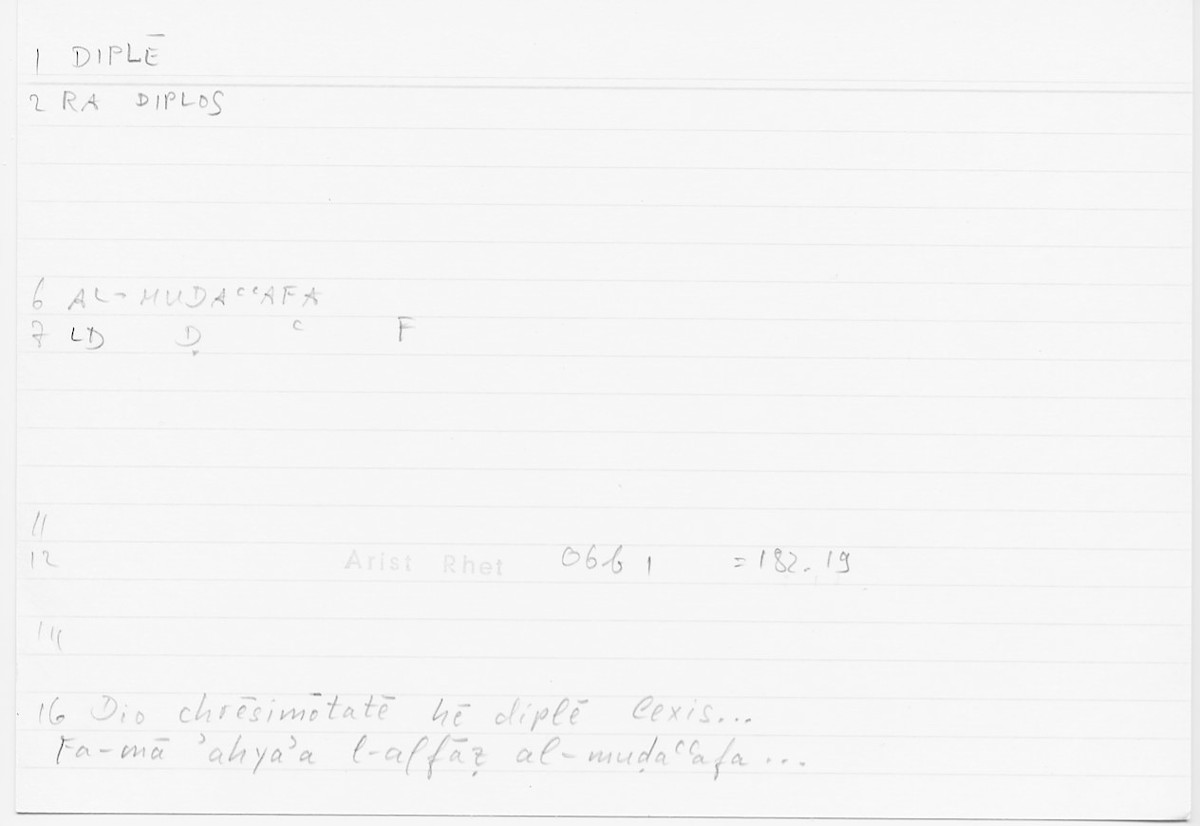 1 DIPLĒ
2 RA DIPLOS
6 AL-MUDAᶜᶜAFA
7 LD Ḍ ᶜ F
11
12 Arist Rhet 06b 1 =182.19
14
16 Dio chrēsimōtatē hē diplē lexis...
Fa-mā ʾahyaʾa l-alfāẓ al-muḍaᶜᶜafa ...